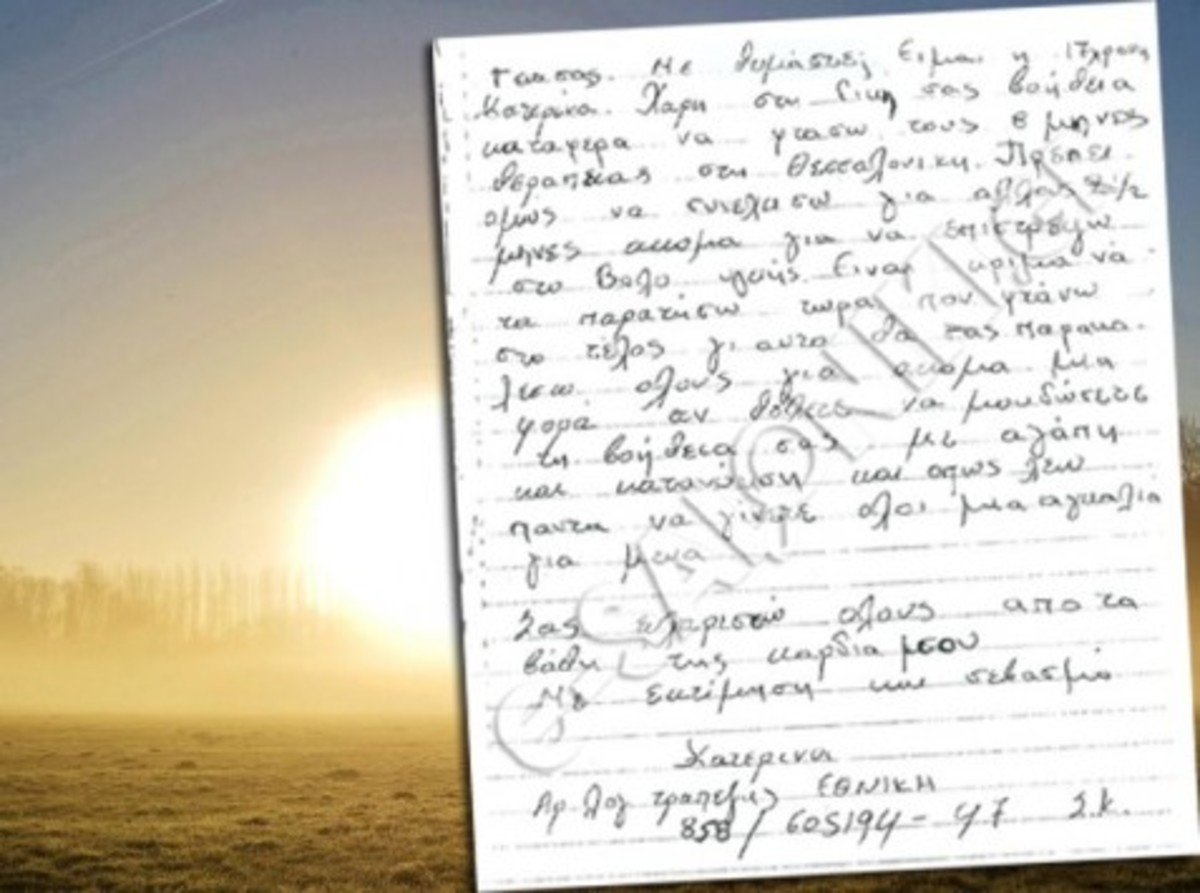 Γεια σας. Με θυμάστε; Ειμαι η 17χρονη
Κατερίνα. Χάρη στη δικη σας βοήθεια
καταφερα να φτασω τους 8 μηνες
θεραπειας στη Θεσσαλονικη. Πρέπει
ομως να συνεχισω για αλλους 2 1/2
μηνες ακομα για να επιστρεψω
στο Βολο υγειής. Ειναι κριμα να
τα παρατήσω τωρα που φτάνω
στο τέλος γι αυτο θα σας παρακα-
λεσω ολους για ακομα μια
φορά αν θέλετε να μου δώσετε
τη βοήθεια σας με αγάπη
και κατανόηση και οπως λεω
παντα να γίνετε ολοι μια αγκαλιά
για μενα
Σας ευχαριστώ ολους απο τα
βάθη της καρδια μσου
Με εκτίμηση και σεβασμό
Κατερινα
Αρ. λογ τραπεζης ΕΘΝΙΚΗ
858/605194-47 Σ.Κ.